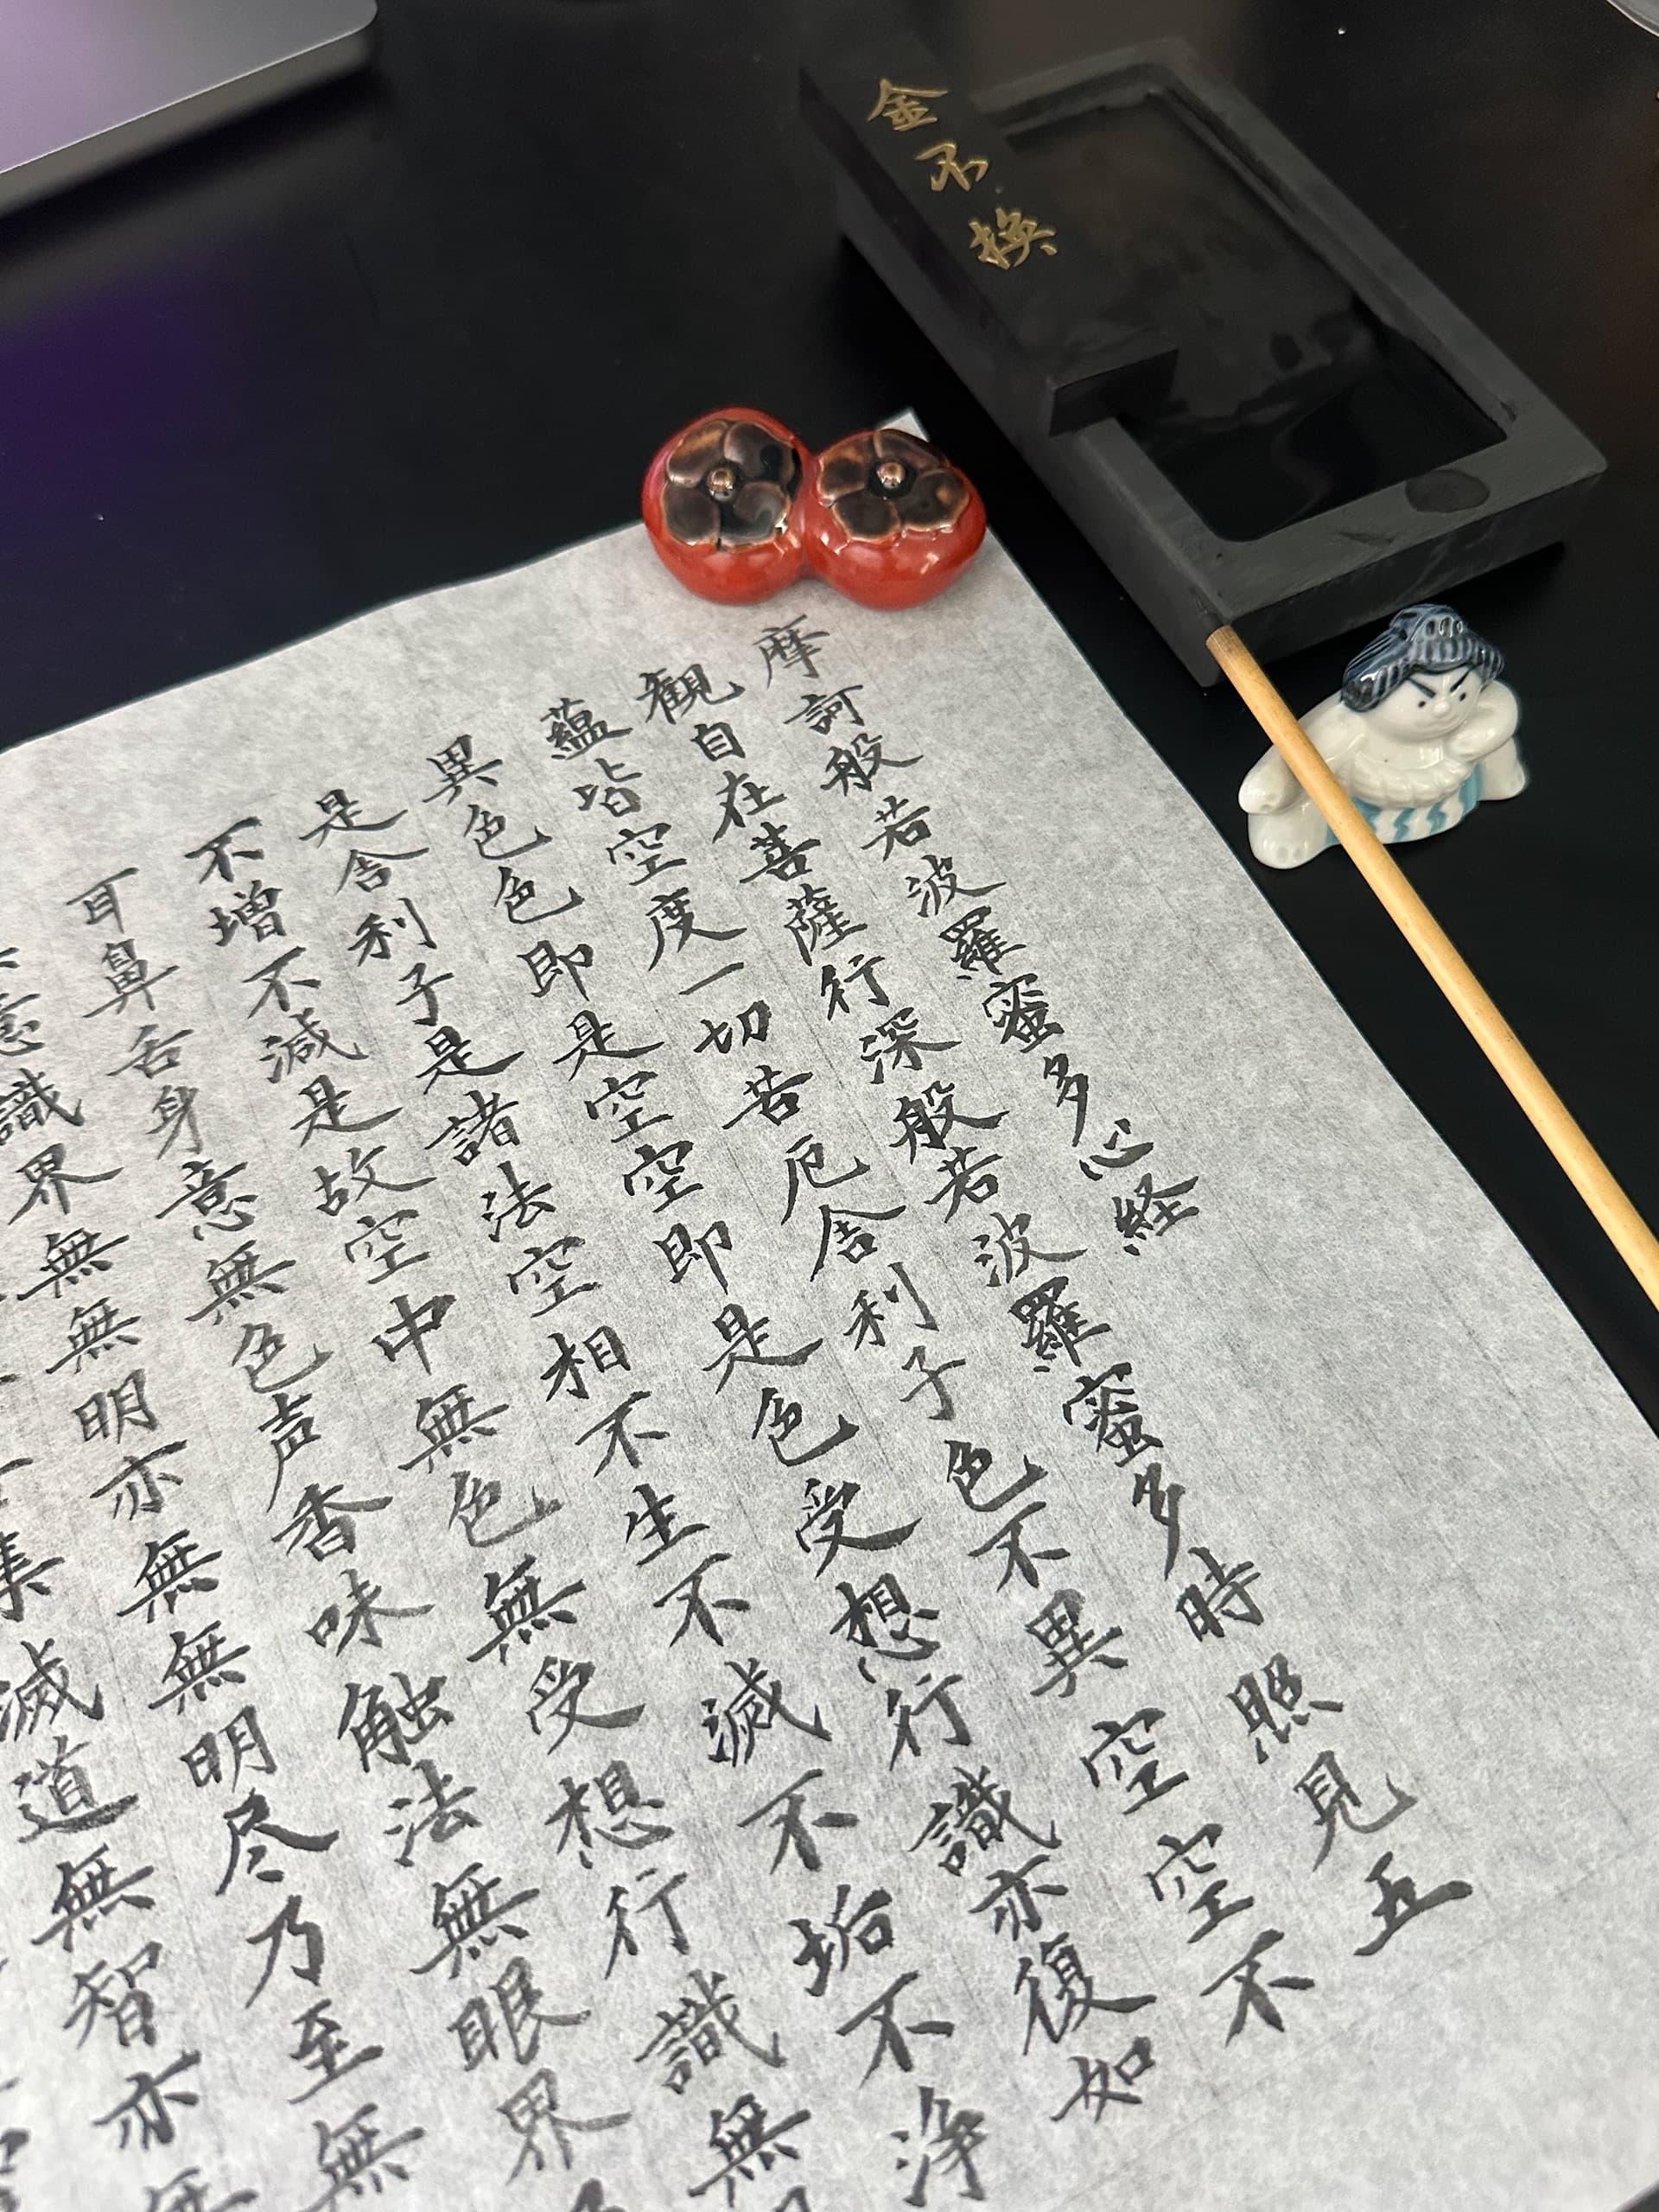 金不換
摩訶般若波羅蜜多心経
観自在菩薩行深般若波羅蜜多時照見五
蘊皆空度一切苦厄舎利子色不異空空不
異色色即是空空即是色受想行識亦復如
是舎利子是諸法空相不生不滅不垢不浄
不増不減是故空中無色無受想行識無
耳鼻舌身意無色声香味触法無眼界
意識界無無明亦無無明尽乃至無
集滅道無智亦無